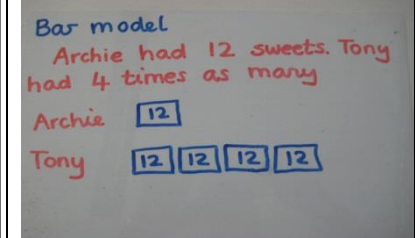 Bar model
Archie had 12 sweets. Tony
had 4 times as many
Archie 12
Tony 12 12 12 12